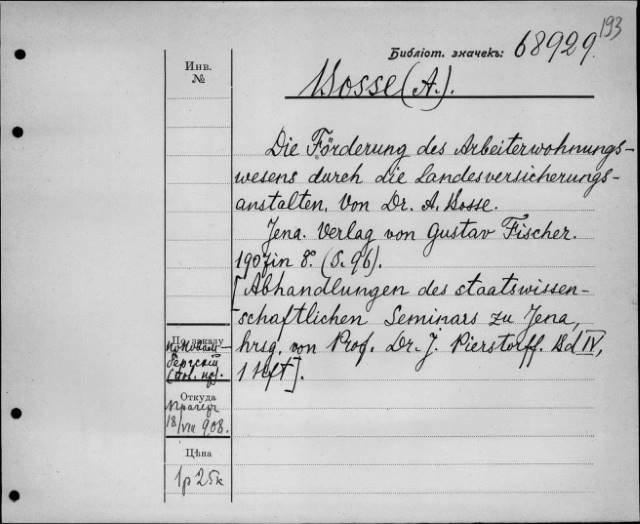 193
Библіот. значекъ: 68929.
Инв.
№
Bosse (A.).
Die Förderung des Arbeiterwohnungs-
wesens durch die Landesversicherungs-
anstalten. Von Dr. A. Bosse.
Jena. Verlag von Gustav Fischer.
1907 in 8°. (S. 96).
[Abhandlungen des staatswissen-
schaftlichen Seminars zu Jena,
hrsg. von Prof. Dr. J. Pierstorff. Bd IV,
1 Heft].
По заказу
Откуда
18/VIII 908.
Цѣна
1р 25к